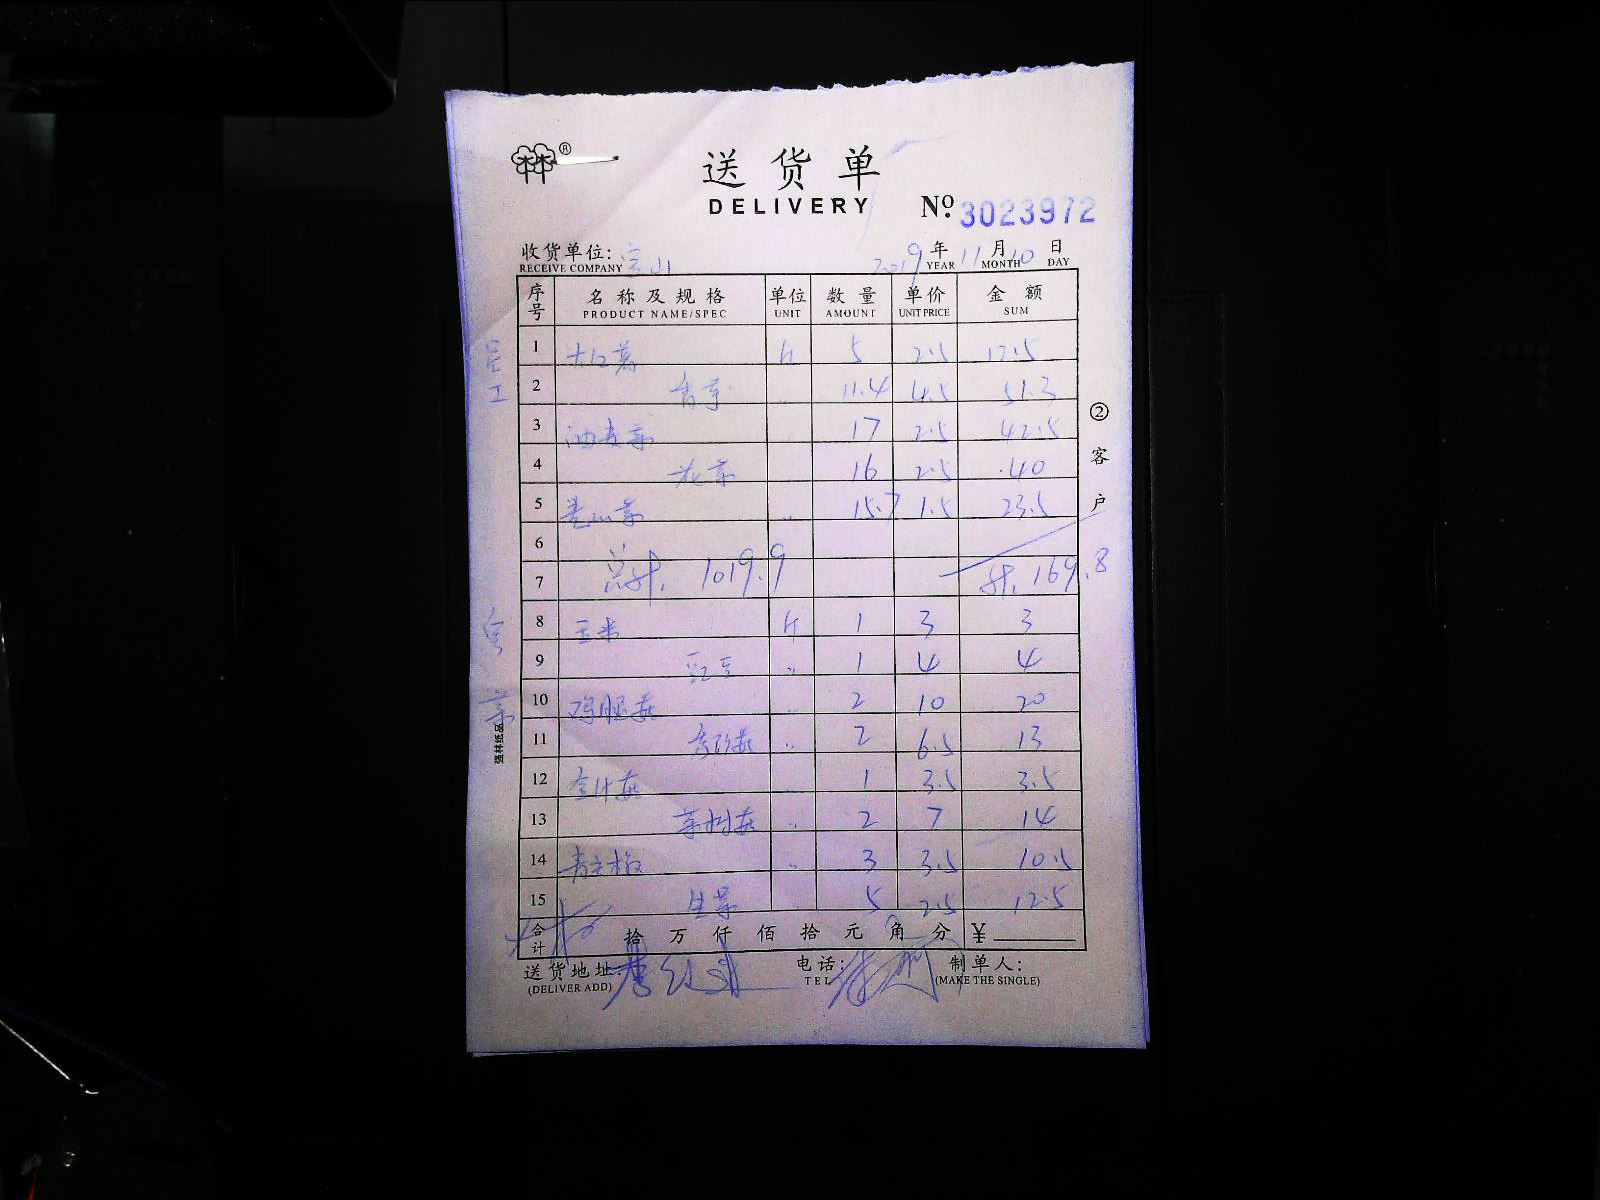 林®
送货单
DELIVERY
№ 3023972
收货单位: 宝山 2019年 11月 10日
RECEIVE COMPANY YEAR MONTH DAY
序号 名称及规格 单位 数量 单价 金额
PRODUCT NAME/SPEC UNIT AMOUNT UNIT PRICE SUM
1 斤 5 2.5 12.5
2 香芹 〃 11.4 4.5 51.3
3 油麦菜 〃 17 2.5 42.5
4 花菜 16 2.5 40
5 〃 15.7 1.5 23.5
6
7 总计. 1019.9 计. 169.8
8 玉米 斤 1 3 3
9 豇豆 〃 1 4 4
10 鸡腿菇 〃 2 10 20
11 〃 2 6.5 13
12 金针菇 1 3.5 3.5
13 茶树菇 〃 2 7 14
14 〃 3 3.5 10.5
15 生菜 5 2.5 12.5
合计 拾万仟佰拾元角分 ¥
送货地址: 电话: 制单人:
(DELIVER ADD) TEL (MAKE THE SINGLE)
②客户
强林纸品